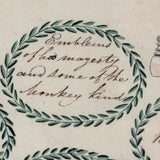 Emblems
of his magesty
and some of the
Monkey kind